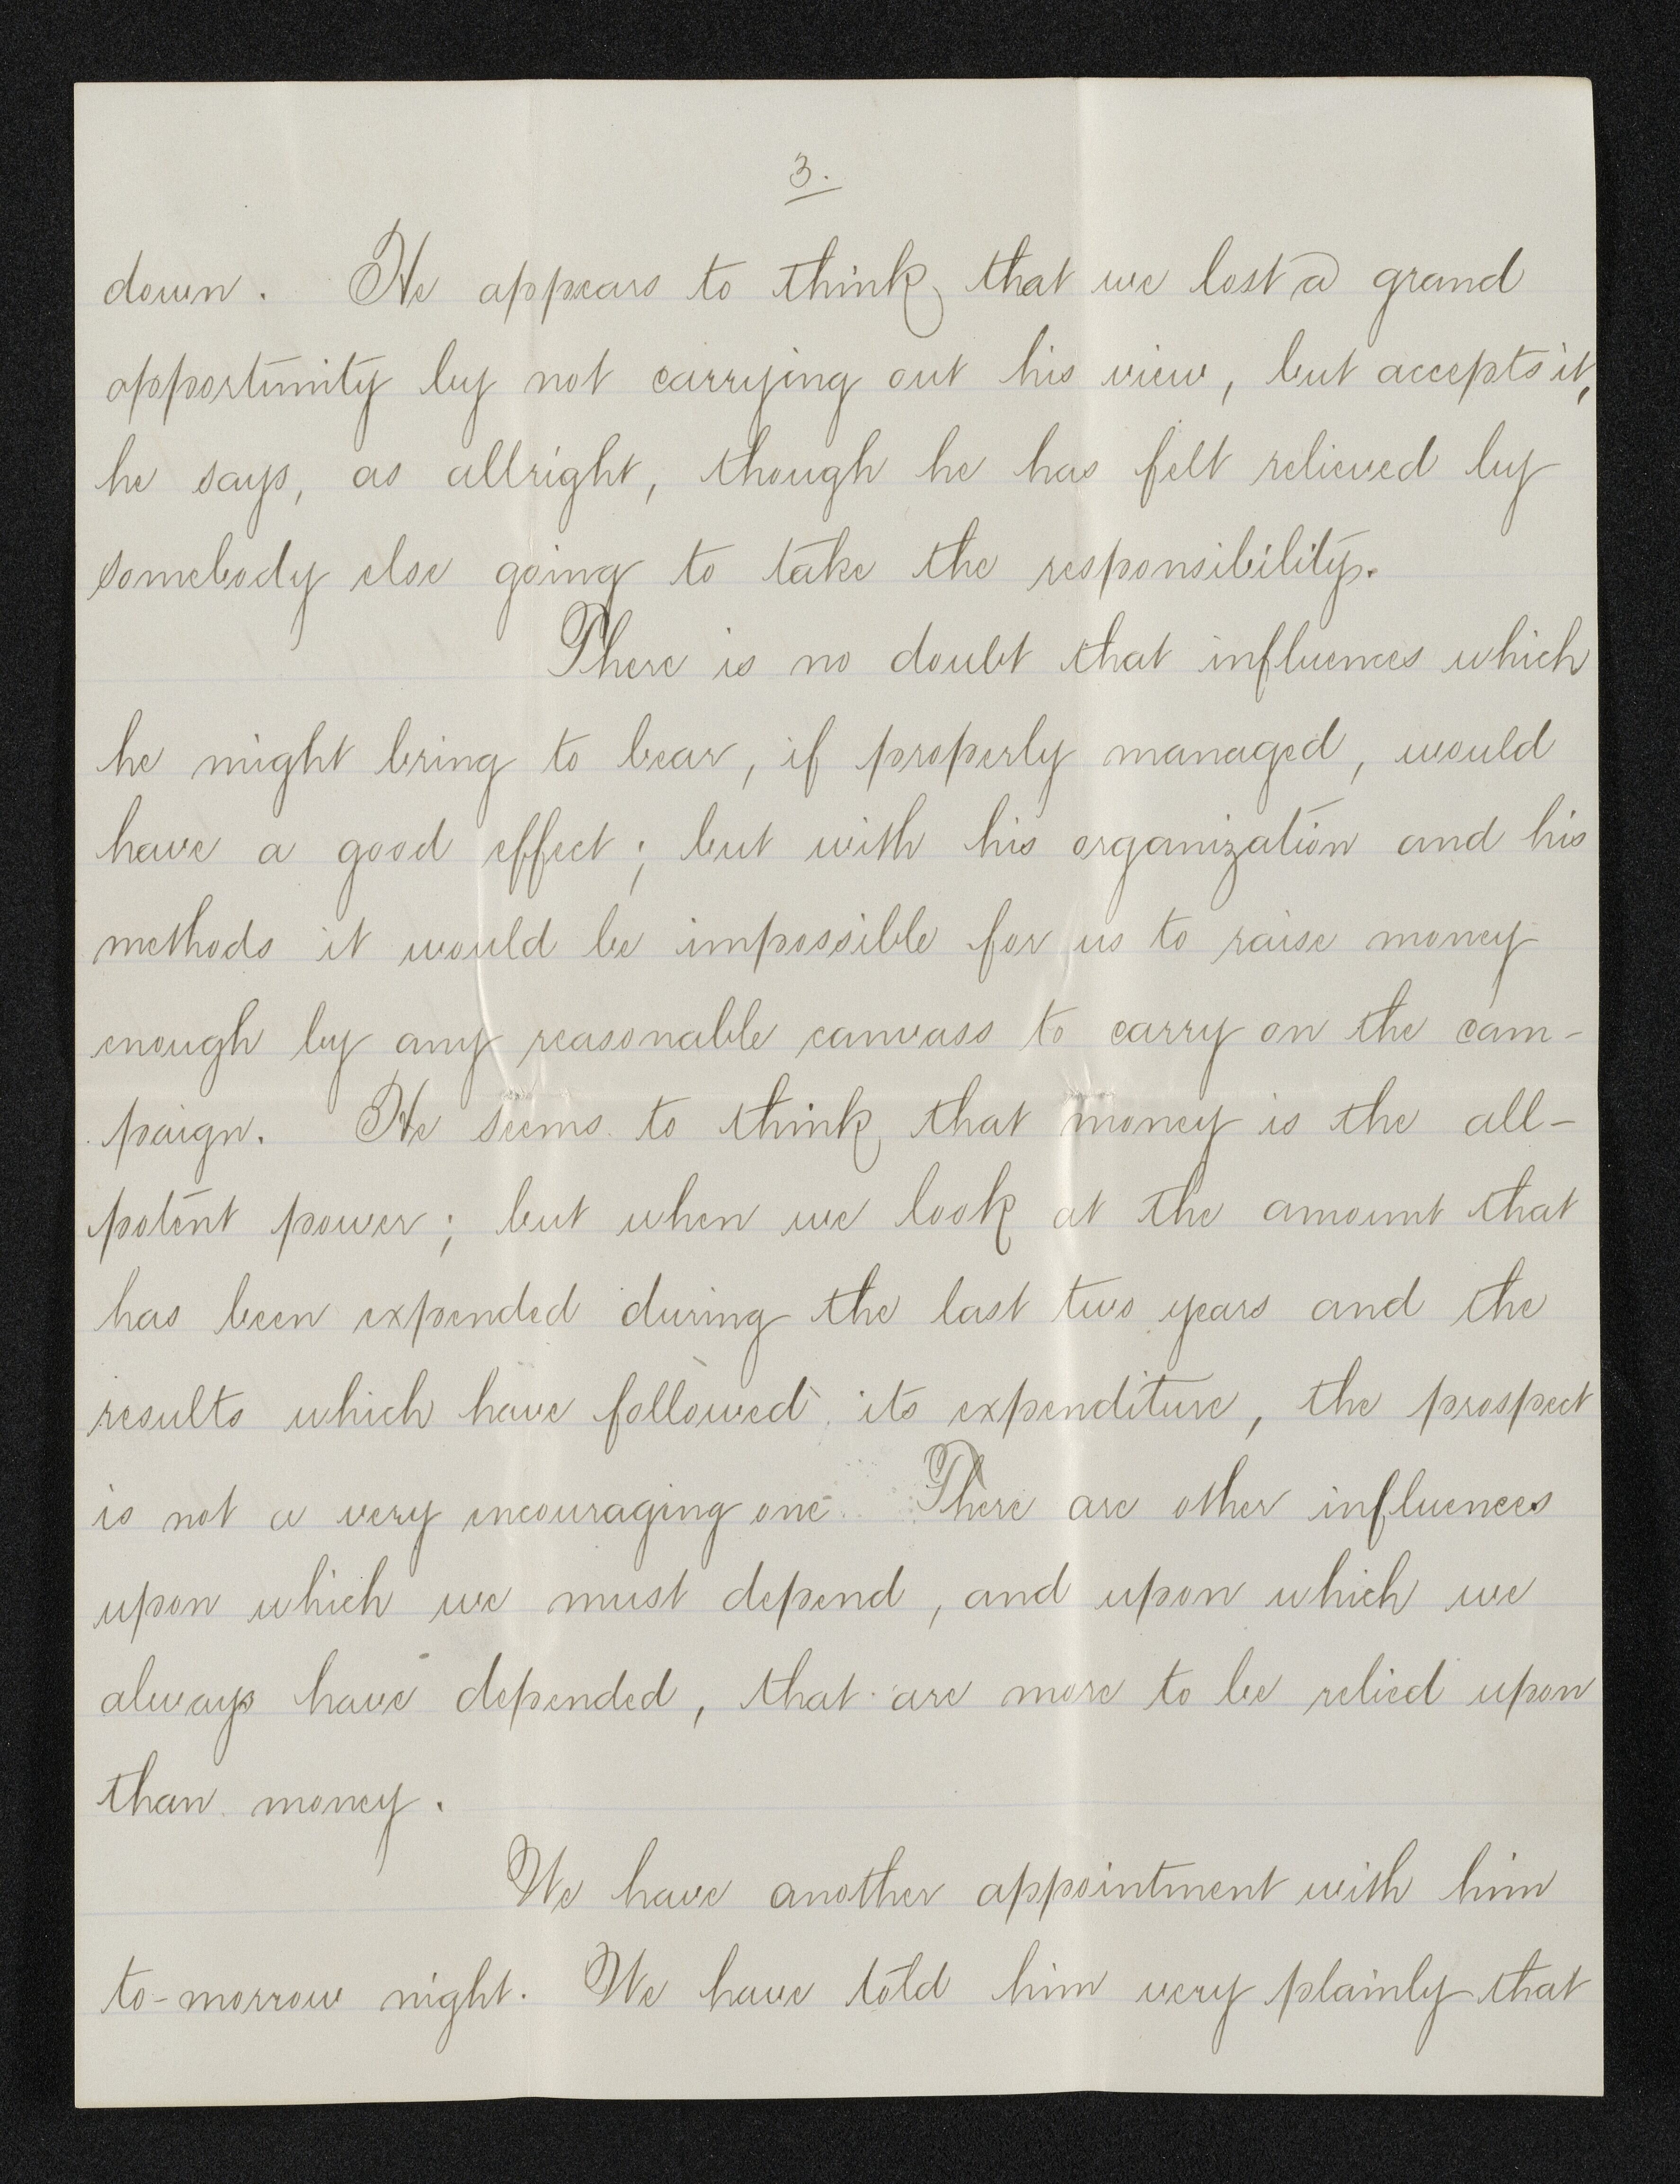 3.
down. He appears to think that we lost a grand
opportunity by not carrying out his view, but accepts it,
he says, as allright, though he has felt relieved by
somebody else going to take the responsibility.
There is no doubt that influences which
he might bring to bear, if properly managed, would
have a good effect; but with his organization and his
methods it would be impossible for us to raise money
enough by any reasonable canvass to carry on the cam-
paign. He seems to think that money is the all-
potent power; but when we look at the amount that
has been expended during the last two years and the
results which have followed its expenditure, the prospect
is not a very encouraging one. There are other influences
upon which we must depend, and upon which we
always have depended, that are more to be relied upon
than money.
We have another appointment with him
to-morrow night. We have told him very plainly that